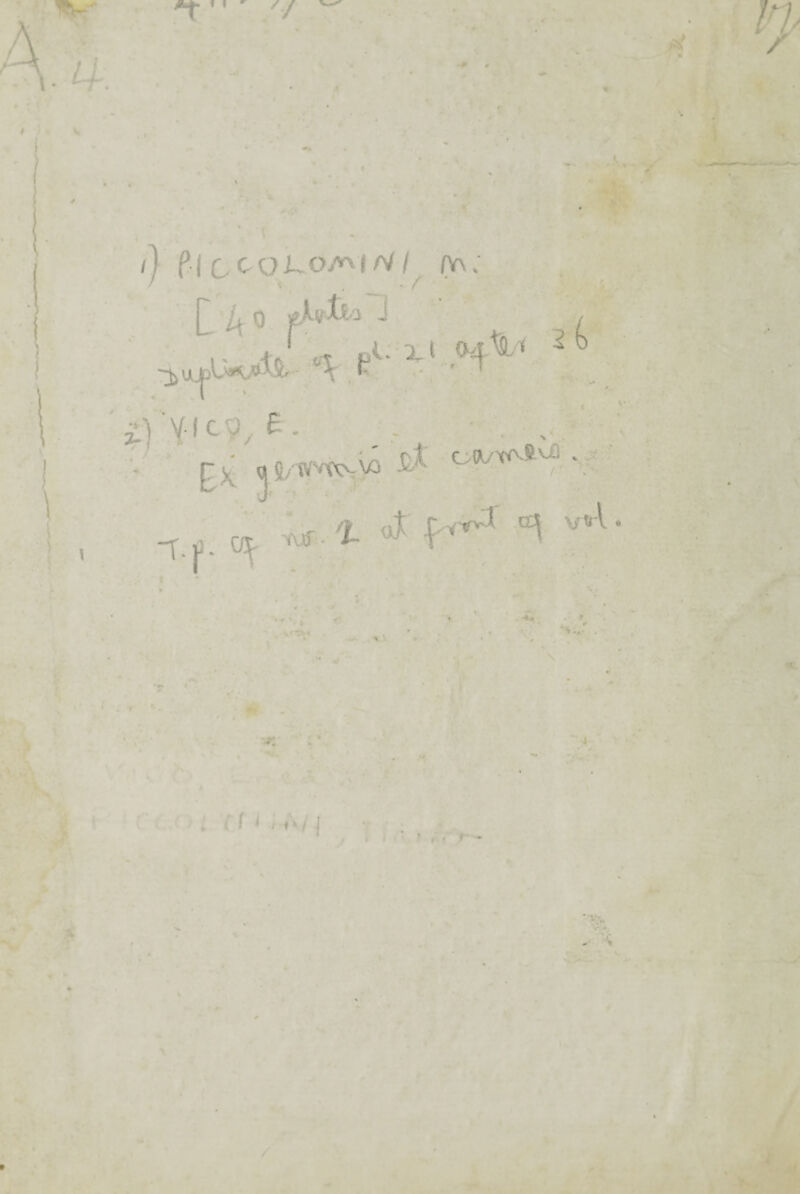 A. 4.
1) PICCOLOMINI, M.
[40 plates]
Duplicate of pl. 21 after 36
2) VICO, E.
Ex gemmis et cameis.
T.p. of no. 2 at front of vol.
VICO, Enea
PICCOLOMINI,